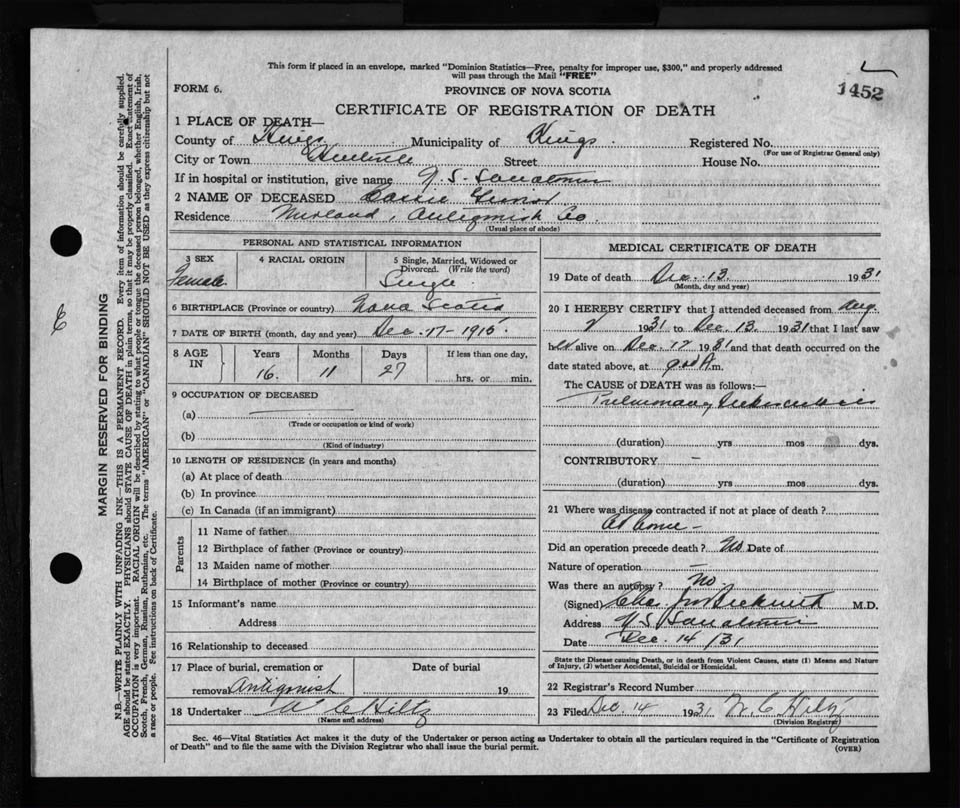 This form if placed in an envelope, marked "Dominion Statistics—Free, penalty for improper use, $300," and properly addressed
will pass through the Mail "FREE"
FORM 6.
PROVINCE OF NOVA SCOTIA
1452
CERTIFICATE OF REGISTRATION OF DEATH
1 PLACE OF DEATH—
County of Kings Municipality of Kings Registered No.
(For use of Registrar General only)
City or Town Kentville Street House No.
If in hospital or institution, give name N. S. Sanatorium
2 NAME OF DECEASED Carrie
Residence Antigonish Co.
(Usual place of abode)
PERSONAL AND STATISTICAL INFORMATION
3 SEX
Female
4 RACIAL ORIGIN
5 Single, Married, Widowed or
Divorced. (Write the word)
Single
6 BIRTHPLACE (Province or country) Nova Scotia
7 DATE OF BIRTH (month, day and year) Dec. 17-
8 AGE
IN
Years Months Days If less than one day,
16 11 27 hrs. or min.
9 OCCUPATION OF DECEASED
(a)
(Trade or occupation or kind of work)
(b)
(Kind of industry)
10 LENGTH OF RESIDENCE (in years and months)
(a) At place of death
(b) In province
(c) In Canada (if an immigrant)
Parents
11 Name of father
12 Birthplace of father (Province or country)
13 Maiden name of mother
14 Birthplace of mother (Province or country)
15 Informant's name
Address
16 Relationship to deceased
17 Place of burial, cremation or
removal Antigonish
Date of burial
19
18 Undertaker W C Hiltz
(Name and address)
MEDICAL CERTIFICATE OF DEATH
19 Date of death Dec. 13. 1931
(Month, day and year)
20 I HEREBY CERTIFY that I attended deceased from Aug.
1931 to Dec. 13. 1931 that I last saw
her alive on Dec. 12 1931 and that death occurred on the
date stated above, at m.
The CAUSE of DEATH was as follows:—
Pulmonary Tuberculosis
(duration) yrs mos dys.
CONTRIBUTORY —
(duration) yrs. mos. dys.
21 Where was disease contracted if not at place of death?
At home -
Did an operation precede death? No. Date of
Nature of operation
Was there an autopsy? No.
(Signed) M.D.
Address N S Sanatorium
Date Dec. 14/31
State the Disease causing Death, or in death from Violent Causes, state (1) Means and Nature
of Injury, (2) whether Accidental, Suicidal or Homicidal.
22 Registrar's Record Number
23 Filed Dec. 14 1931 W. C. Hiltz
(Division Registrar)
Sec. 46—Vital Statistics Act makes it the duty of the Undertaker or person acting as Undertaker to obtain all the particulars required in the "Certificate of Registration
of Death" and to file the same with the Division Registrar who shall issue the burial permit.
(OVER)
MARGIN RESERVED FOR BINDING
N.B.—WRITE PLAINLY WITH UNFADING INK—THIS IS A PERMANENT RECORD. Every item of information should be carefully supplied.
AGE should be stated EXACTLY. PHYSICIANS should STATE CAUSE OF DEATH in plain terms, so that it may be properly classified. Exact statement of
OCCUPATION is very important. RACIAL ORIGIN will be described by stating to what people or tongue the deceased person belonged, whether English, Irish,
Scotch, French, German, Russian, Ruthenian, etc. The terms "AMERICAN" or "CANADIAN" SHOULD NOT BE USED as they express citizenship but not
a race or people. See instructions on back of Certificate.